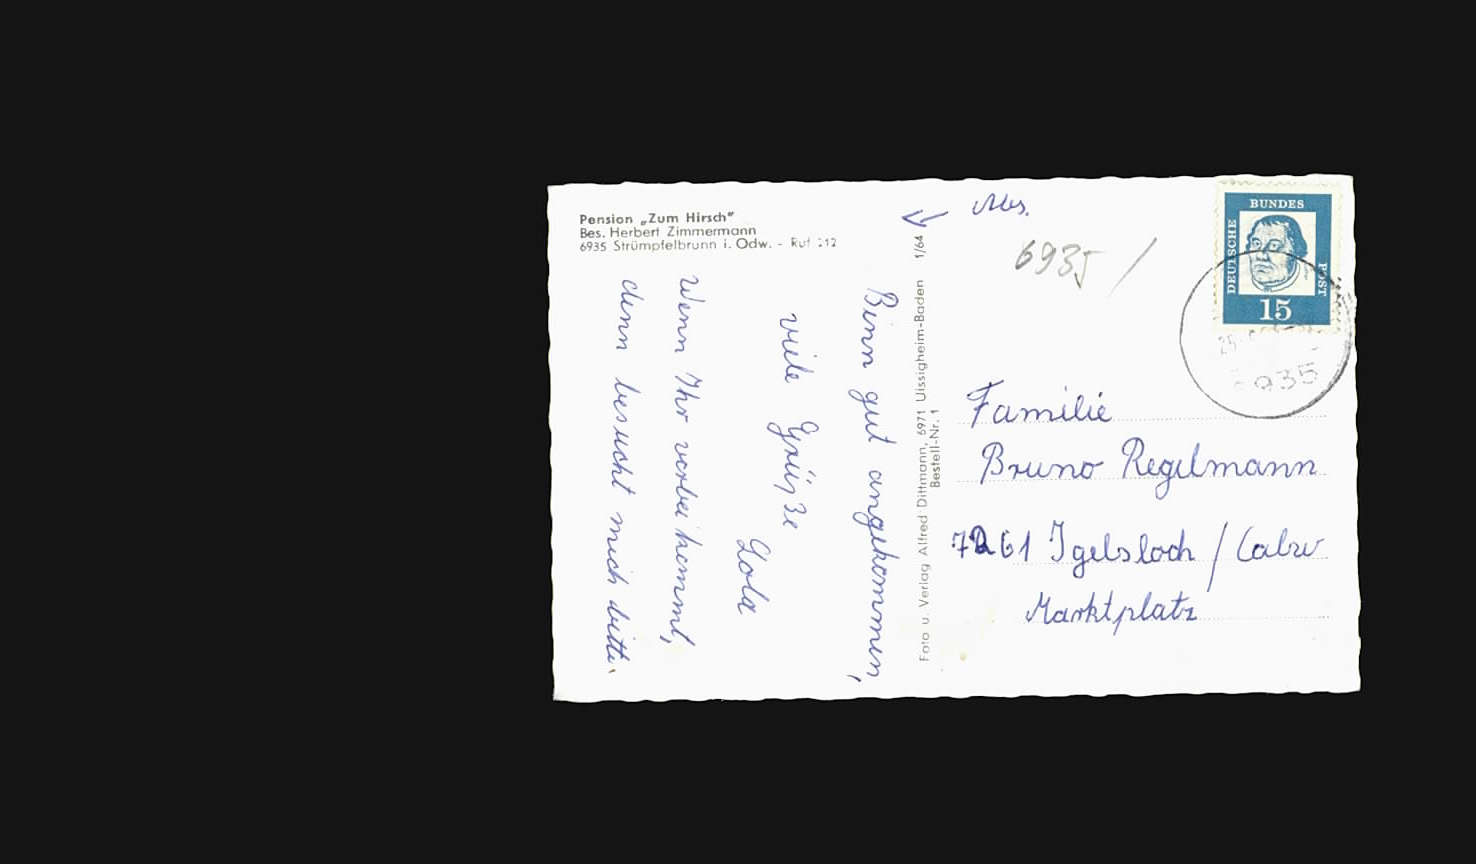 Pension „Zum Hirsch"
Bes. Herbert Zimmermann
6935 Strümpfelbrunn i. Odw. - Ruf 212
Binn gut angekommen,
viele Grüsze
Lola
Wenn Ihr vorbei kommt,
denn besucht mich bitte.
Foto u. Verlag Alfred Dittmann, 6971 Uissigheim-Baden 1/64
Bestell-Nr. 1
Abs.
6935 /
DEUTSCHE
BUNDES
POST
15
6935
Familie
Bruno Regelmann
7261 Igelsloch / Calw
Marktplatz